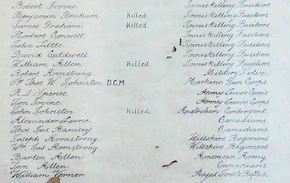 Robert Irvine Inniskilling Fusiliers
Benjamin Graham Killed Inniskilling Fusiliers
James Graham Killed Inniskilling Fusiliers
Herbert Inniskilling Fusiliers
John Little Inniskilling Fusiliers
David Caldwell Inniskilling Fusiliers
William Allen Killed. Inniskilling Fusiliers
Robert Armstrong Military Police
Thos W. Johnston D.C.M. Machine Gun Corps
R. J. Spence Army Corps
Tom Irvine Army Corps
John Johnston Killed Australian Contingent
Alexander Canadians.
Thos. Jas Ramsey Canadians.
Joseph Armstrong Wiltshire Regiment
Wm Jas Armstrong Wiltshire Regiment
Barton Allen American Army
Tom Allen Canadians
William Vernon Royal Scots